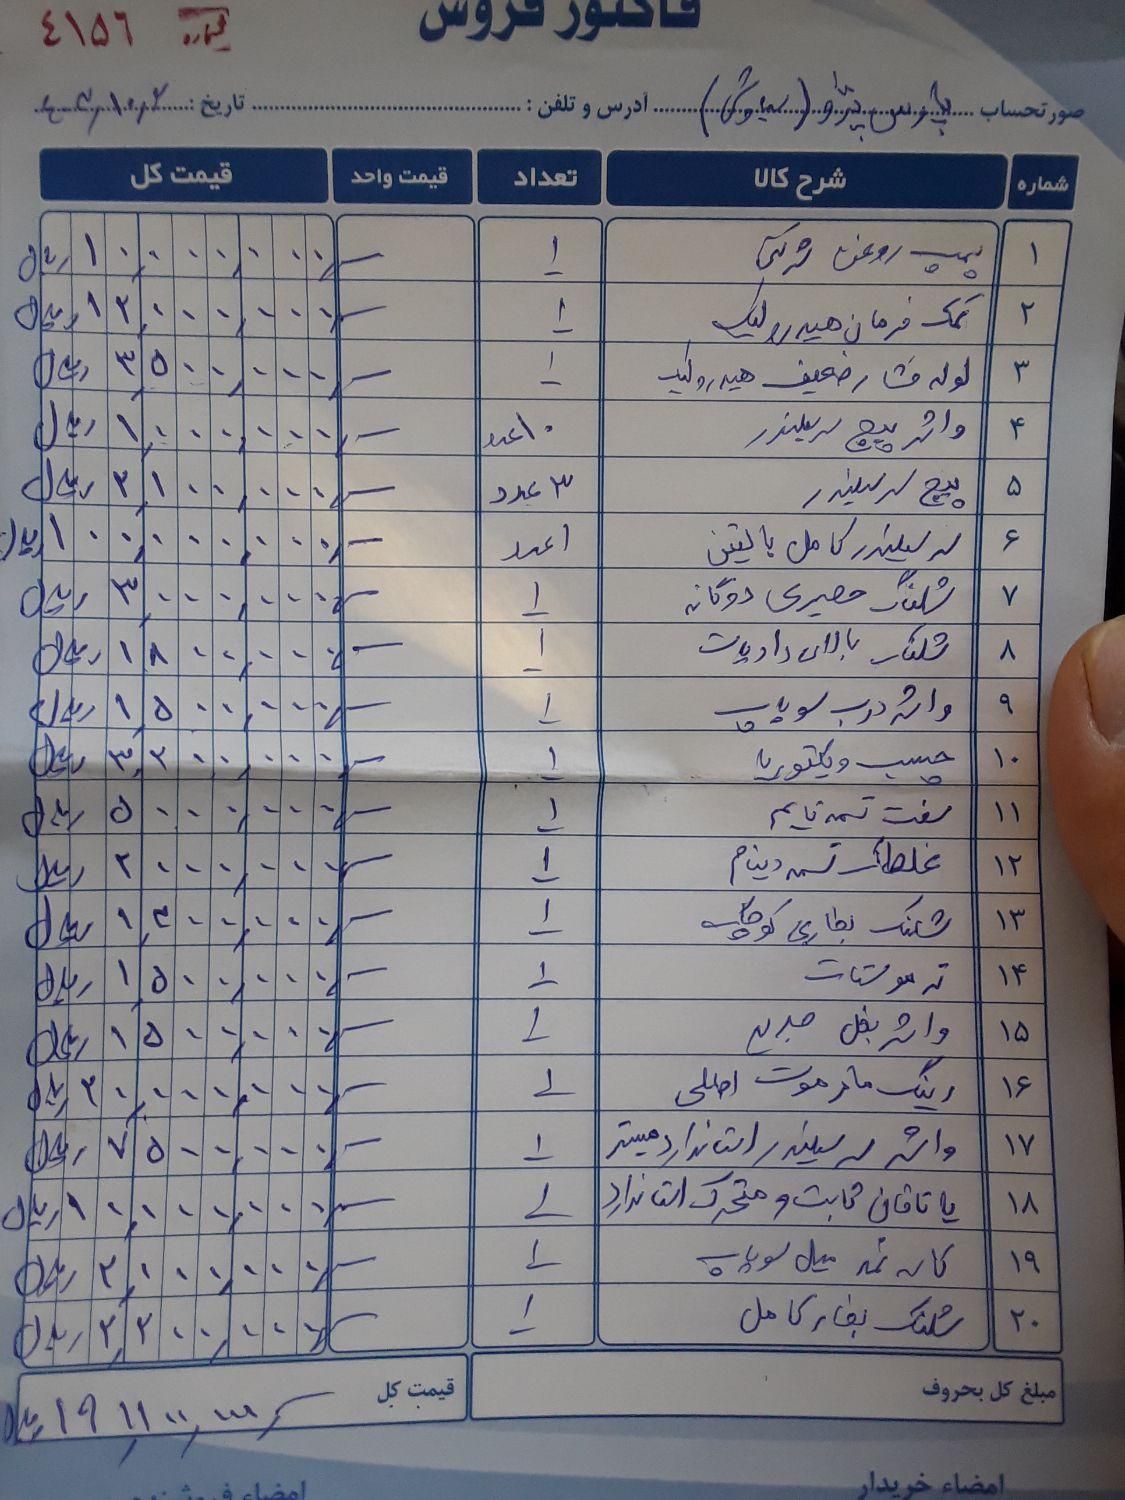 فاکتور فروش
شماره ۴۱۵۶
صورتحساب پارس پژو (سیوش) آدرس و تلفن : تاریخ :
شماره شرح کالا تعداد قیمت واحد قیمت کل
۱ پمپ روغن شرکتی ۱ — ۱۰,۰۰۰,۰۰۰ ریال
۲ کمک فرمان هیدرولیک ۱ — ۱۲,۰۰۰,۰۰۰ ریال
۳ لوله فشار ضعیف هیدرولیک ۱ — ۳,۵۰۰,۰۰۰ ریال
۴ واشر پیچ سرسیلندر ۱۰ عدد — ۱,۰۰۰,۰۰۰ ریال
۵ پیچ سرسیلندر ۳ عدد — ۲,۱۰۰,۰۰۰ ریال
۶ سرسیلندر کامل با لیتین ۱ عدد — ۱۰۰,۰۰۰,۰۰۰ ریال
۷ شلنگ حصیری دوگانه ۱ — ۳,۰۰۰,۰۰۰ ریال
۸ شلنگ بالای رادیات ۱ — ۱,۸۰۰,۰۰۰ ریال
۹ واشر درب سوپاپ ۱ — ۱,۵۰۰,۰۰۰ ریال
۱۰ چسب ویکتوریا ۱ — ۳,۲۰۰,۰۰۰ ریال
۱۱ سفت تسمه تایم ۱ — ۵,۰۰۰,۰۰۰ ریال
۱۲ غلطک تسمه دینام ۱ — ۲,۰۰۰,۰۰۰ ریال
۱۳ شلنگ بخاری کوچک ۱ — ۱,۲۰۰,۰۰۰ ریال
۱۴ ترموستات ۱ — ۱,۵۰۰,۰۰۰ ریال
۱۵ واشر بغل ۱ — ۱,۵۰۰,۰۰۰ ریال
۱۶ رینگ ماهر موت اصلی ۱ — ۲۰,۰۰۰,۰۰۰ ریال
۱۷ واشر سرسیلندر استاندارد میستر ۱ — ۷,۵۰۰,۰۰۰ ریال
۱۸ یاتاقان ثابت و متحرک استاندارد ۱ — ۱۰,۰۰۰,۰۰۰ ریال
۱۹ کاسه نمد میل سوپاپ ۱ — ۲,۰۰۰,۰۰۰ ریال
۲۰ شلنگ بخار کامل ۱ — ۲,۲۰۰,۰۰۰ ریال
مبلغ کل بحروف قیمت کل ۱۹۱,۱۰۰,۰۰۰ ریال
امضاء خریدار امضاء فروشنده